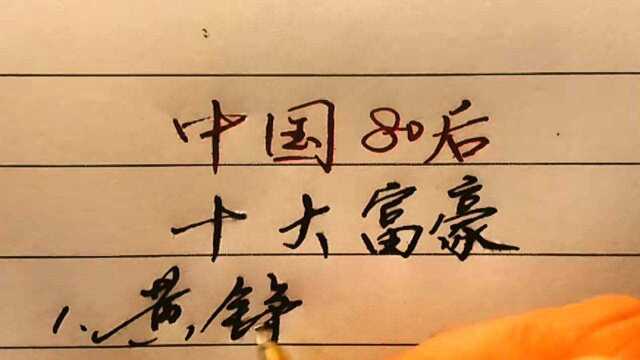 中国80后
十大富豪
1、黄峥